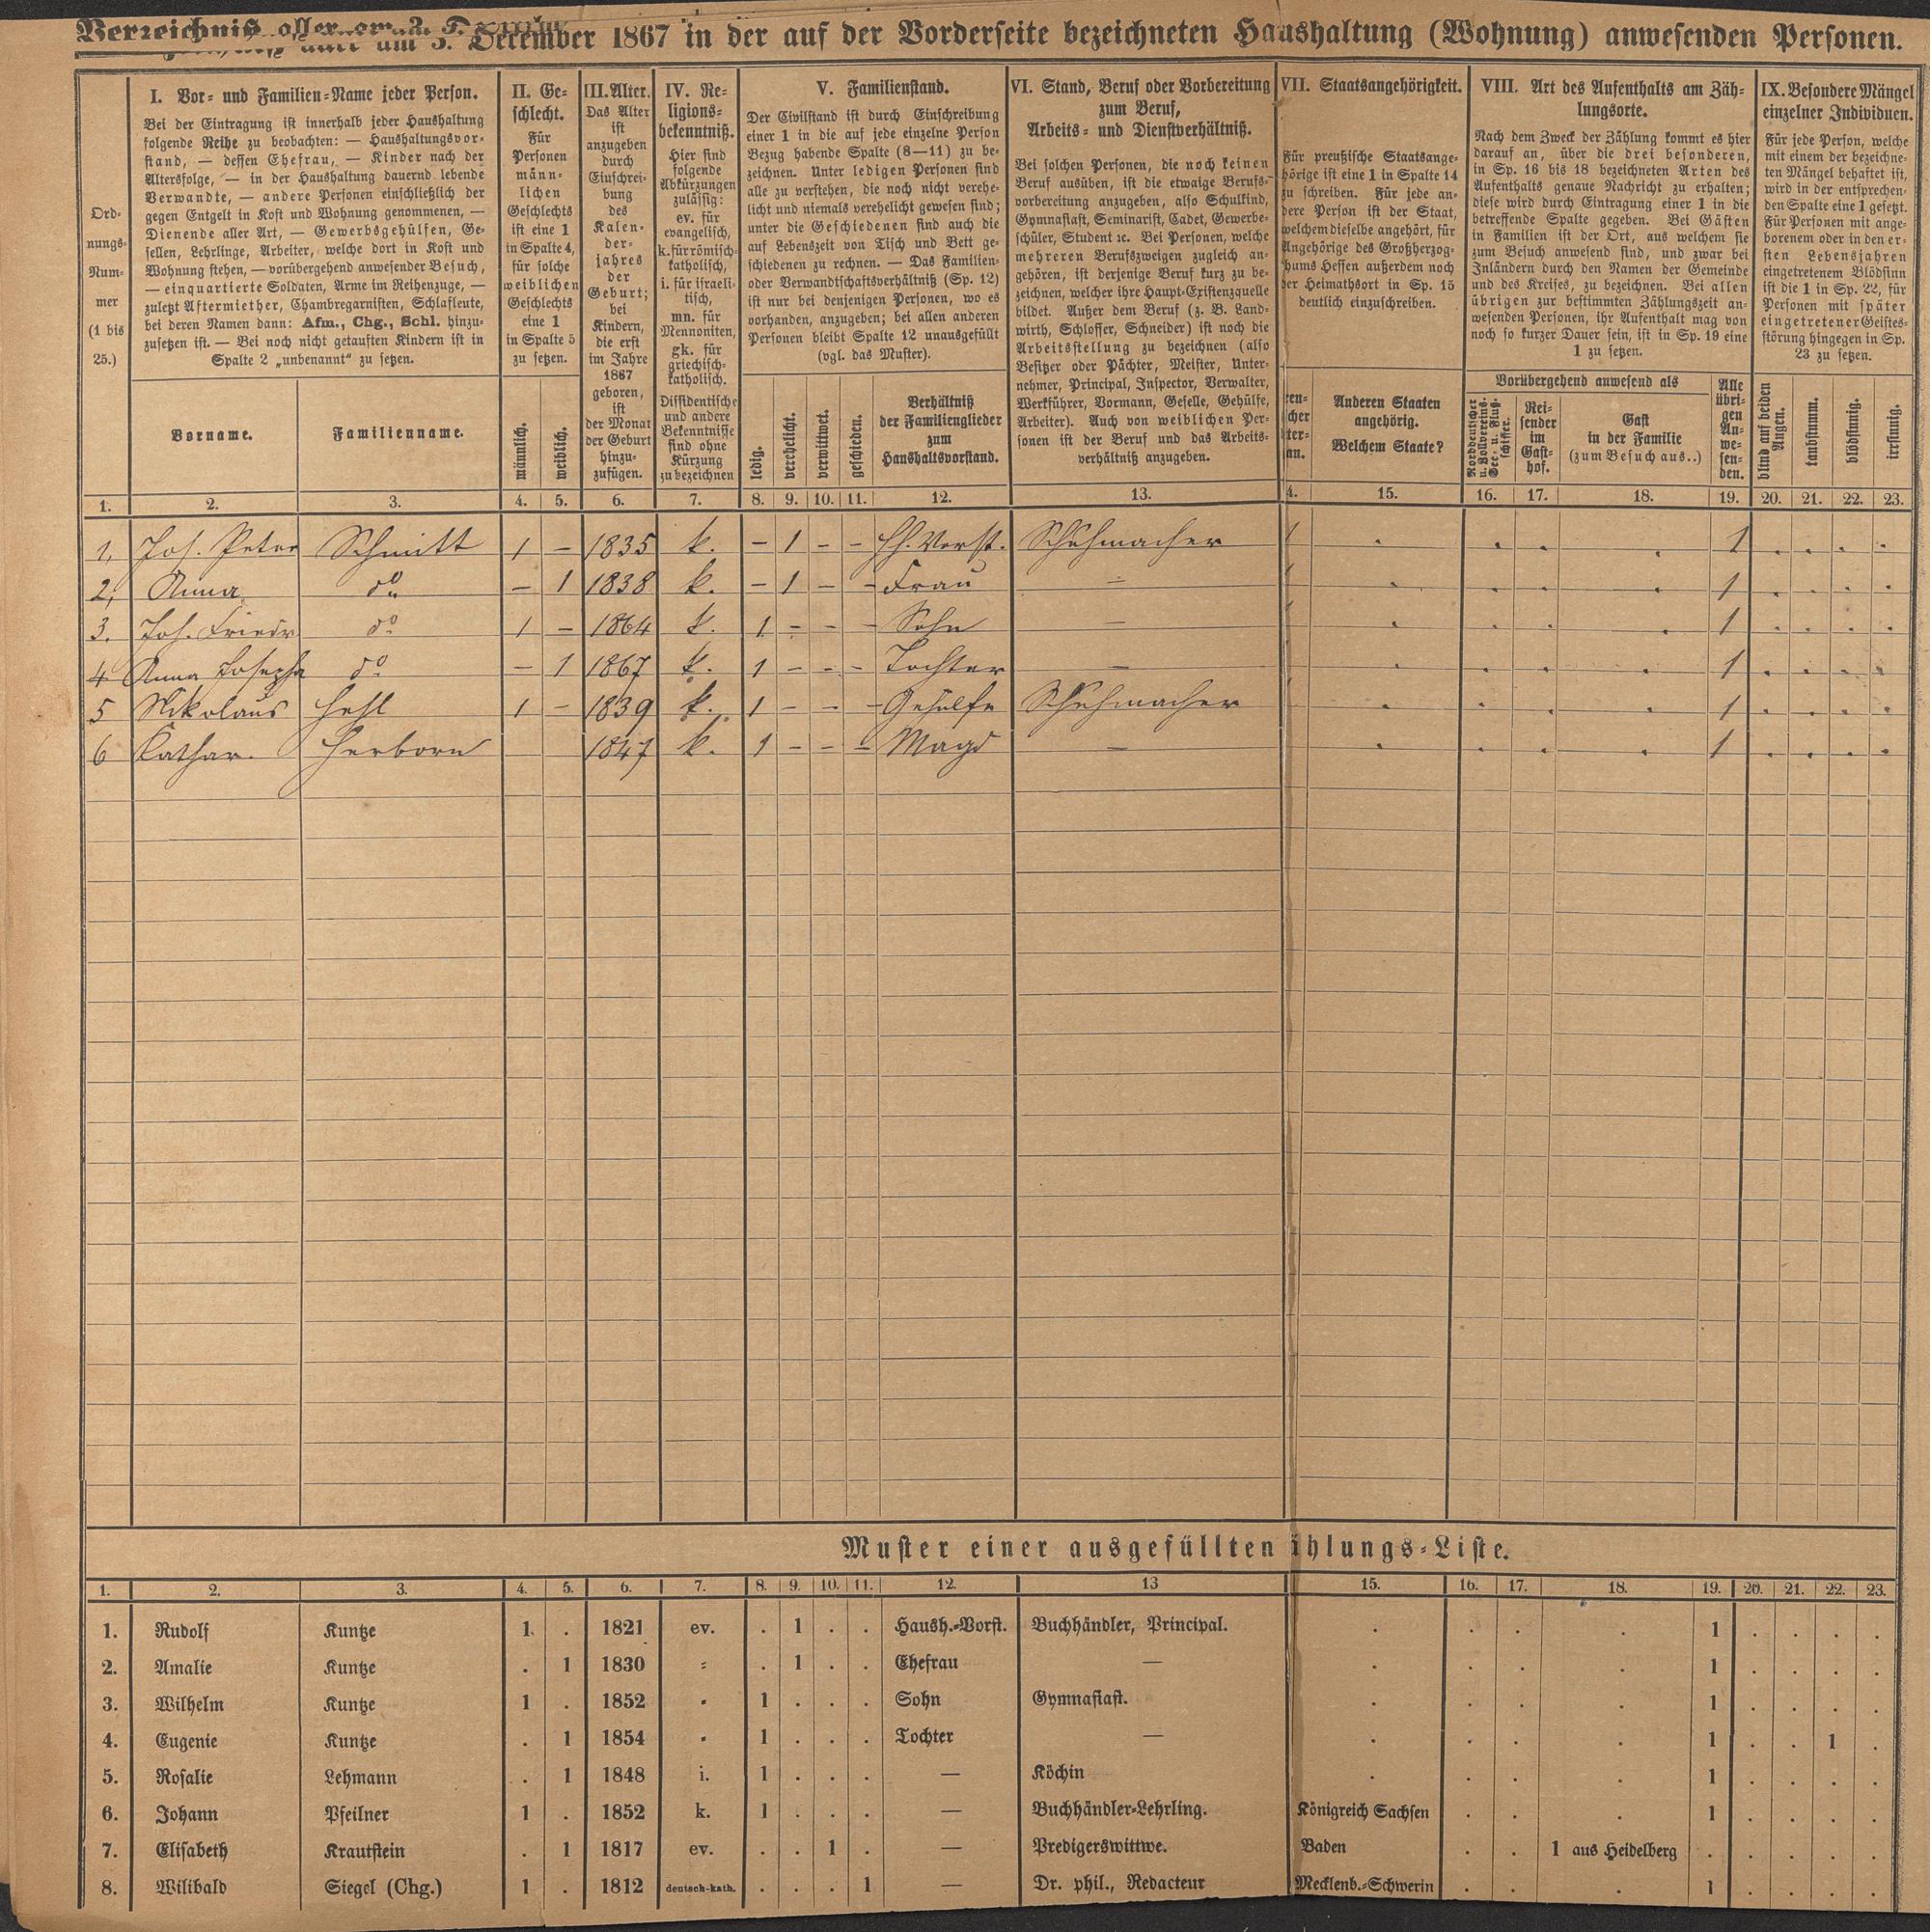 Verzeichniß aller am 3. December 1867 in der auf der Vorderseite bezeichneten Haushaltung (Wohnung) anwesenden Personen.
Ord-
nungs-
Num-
mer
(1 bis
25.)
I. Vor- und Familien-Name jeder Person.
Bei der Eintragung ist innerhalb jeder Haushaltung
folgende Reihe zu beobachten: — Haushaltungsvor-
stand, — dessen Ehefrau, — Kinder nach der
Altersfolge, — in der Haushaltung dauernd lebende
Verwandte, — andere Personen einschließlich der
gegen Entgelt in Kost und Wohnung genommenen, —
Dienende aller Art, — Gewerbsgehülfen, Ge-
sellen, Lehrlinge, Arbeiter, welche dort in Kost und
Wohnung stehen, — vorübergehend anwesender Besuch,
— einquartierte Soldaten, Arme im Reihenzuge, —
zuletzt Aftermiether, Chambregarnisten, Schlafleute,
bei deren Namen dann: Afm., Chg., Schl. hinzu-
zusetzen ist. — Bei noch nicht getauften Kindern ist in
Spalte 2 „unbenannt“ zu setzen.
Vorname.
Familienname.
II. Ge-
schlecht.
Für
Personen
männ-
lichen
Geschlechts
ist eine 1
in Spalte 4,
für solche
weiblichen
Geschlechts
eine 1
in Spalte 5
zu setzen.
männlich.
weiblich.
III. Alter.
Das Alter
ist
anzugeben
durch
Einschrei-
bung
des
Kalen-
der-
jahres
der
Geburt;
bei
Kindern,
die erst
im Jahre
1867
geboren,
ist
der Monat
der Geburt
hinzu-
zufügen.
IV. Re-
ligions-
bekenntniß.
Hier sind
folgende
Abkürzungen
zulässig:
ev. für
evangelisch,
k. für römisch-
katholisch,
i. für israeli-
tisch,
mn. für
Mennoniten,
gk. für
griechisch-
katholisch.
Dissidentische
und andere
Bekenntnisse
sind ohne
Kürzung
zu bezeichnen
V. Familienstand.
Der Civilstand ist durch Einschreibung
einer 1 in die auf jede einzelne Person
Bezug habende Spalte (8—11) zu be-
zeichnen. Unter ledigen Personen sind
alle zu verstehen, die noch nicht verehe-
licht und niemals verehelicht gewesen sind;
unter die Geschiedenen sind auch die
auf Lebenszeit von Tisch und Bett ge-
schiedenen zu rechnen. — Das Familien-
oder Verwandtschaftsverhältniß (Sp. 12)
ist nur bei denjenigen Personen, wo es
vorhanden, anzugeben; bei allen anderen
Personen bleibt Spalte 12 unausgefüllt
(vgl. das Muster).
ledig.
verehelicht.
verwittwet.
geschieden.
Verhältniß
der Familienglieder
zum
Haushaltsvorstand.
VI. Stand, Beruf oder Vorbereitung
zum Beruf,
Arbeits- und Dienstverhältniß.
Bei solchen Personen, die noch keinen
Beruf ausüben, ist die etwaige Berufs-
vorbereitung anzugeben, also Schulkind,
Gymnasiast, Seminarist, Cadet, Gewerbe-
schüler, Student ꝛc. Bei Personen, welche
mehreren Berufszweigen zugleich an-
gehören, ist derjenige Beruf kurz zu be-
zeichnen, welcher ihre Haupt-Existenzquelle
bildet. Außer dem Beruf (z. B. Land-
wirth, Schlosser, Schneider) ist noch die
Arbeitsstellung zu bezeichnen (also
Besitzer oder Pächter, Meister, Unter-
nehmer, Principal, Inspector, Verwalter,
Werkführer, Vormann, Geselle, Gehülfe,
Arbeiter). Auch von weiblichen Per-
sonen ist der Beruf und das Arbeits-
verhältniß anzugeben.
VII. Staatsangehörigkeit.
Für preußische Staatsange-
hörige ist eine 1 in Spalte 14
zu schreiben. Für jede an-
dere Person ist der Staat,
welchem dieselbe angehört, für
Angehörige des Großherzog-
thums Hessen außerdem noch
der Heimathsort in Sp. 15
deutlich einzuschreiben.
Anderen Staaten
angehörig.
Welchem Staate?
VIII. Art des Aufenthalts am Zäh-
lungsorte.
Nach dem Zweck der Zählung kommt es hier
darauf an, über die drei besonderen,
in Sp. 16 bis 18 bezeichneten Arten des
Aufenthalts genaue Nachricht zu erhalten;
diese wird durch Eintragung einer 1 in die
betreffende Spalte gegeben. Bei Gästen
in Familien ist der Ort, aus welchem sie
zum Besuch anwesend sind, und zwar bei
Inländern durch den Namen der Gemeinde
und des Kreises, zu bezeichnen. Bei allen
übrigen zur bestimmten Zählungszeit an-
wesenden Personen, ihr Aufenthalt mag von
noch so kurzer Dauer sein, ist in Sp. 19 eine
1 zu setzen.
Vorübergehend anwesend als
Norddeutscher
u. Vollvereins-
See- u. Fluß-
schiffer.
Rei-
sender
im
Gast-
hof.
Gast
in der Familie
(zum Besuch aus..)
Alle
übri-
gen
An-
we-
sen-
den.
IX. Besondere Mängel
einzelner Individuen.
Für jede Person, welche
mit einem der bezeichne-
ten Mängel behaftet ist,
wird in der entsprechen-
den Spalte eine 1 gesetzt.
Für Personen mit ange-
borenem oder in den er-
sten Lebensjahren
eingetretenem Blödsinn
ist die 1 in Sp. 22, für
Personen mit später
eingetretener Geistes-
störung hingegen in Sp.
23 zu setzen.
blind auf beiden
Augen.
taubstumm.
blödsinnig.
irrsinnig.
1. 2. 3. 4. 5. 6. 7. 8. 9. 10. 11. 12. 13. 4. 15. 16. 17. 18. 19. 20. 21. 22. 23.
1, Joh. Peter Schmitt 1 – 1835 k. – 1 – – Hh. Vorst. Schuhmacher 1 . . . . 1 . . . .
2, Anna do – 1 1838 k. – 1 – – Frau – 1 . . . . 1 . . . .
3. Joh. Friedr. do 1 – 1864 k. 1 – – – Sohn – 1 . . . . 1 . . . .
4 Anna Josepha do – 1 1867 k. 1 – – – Tochter – 1 . . . . 1 . . . .
5 Nikolaus Hehl 1 – 1839 k. 1 – – – Gehülfe Schuhmacher 1 . . . . 1 . . . .
6 Kathar. Herborn 1847 k. 1 – – – Magd – 1 . . . . 1 . . . .
Muster einer ausgefüllten ählungs-Liste.
1. 2. 3. 4. 5. 6. 7. 8. 9. 10. 11. 12. 13 15. 16. 17. 18. 19. 20. 21. 22. 23.
1. Rudolf Kuntze 1 . 1821 ev. . 1 . . Haush.-Vorst. Buchhändler, Principal. . . . . 1 . . . .
2. Amalie Kuntze . 1 1830 „ . 1 . . Ehefrau — . . . . 1 . . . .
3. Wilhelm Kuntze 1 . 1852 „ 1 . . . Sohn Gymnasiast. . . . . 1 . . . .
4. Eugenie Kuntze . 1 1854 „ 1 . . . Tochter — . . . . 1 . . 1 .
5. Rosalie Lehmann . 1 1848 i. 1 . . . — Köchin . . . . 1 . . . .
6. Johann Pfeilner 1 . 1852 k. 1 . . . — Buchhändler-Lehrling. Königreich Sachsen . . . 1 . . . .
7. Elisabeth Krautstein . 1 1817 ev. . . 1 . — Predigerswittwe. Baden . . 1 aus Heidelberg . . . . .
8. Wilibald Siegel (Chg.) 1 . 1812 deutsch-kath. . . . 1 — Dr. phil., Redacteur Mecklenb.-Schwerin . . . 1 . . . .